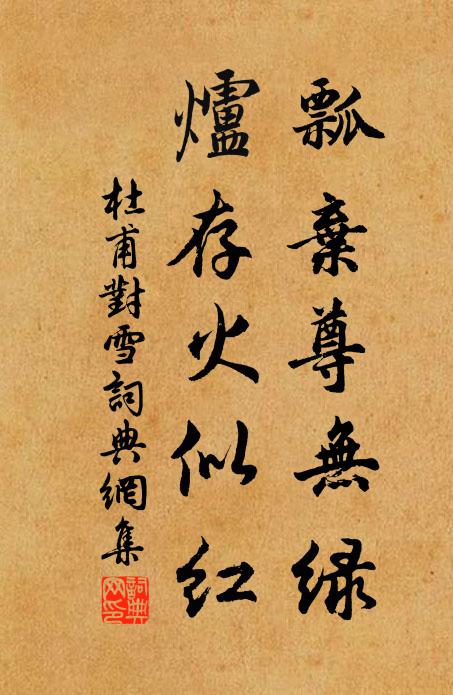 瓢棄尊無緑
爐存火似紅
杜甫對雪詞典網集
詞典網印